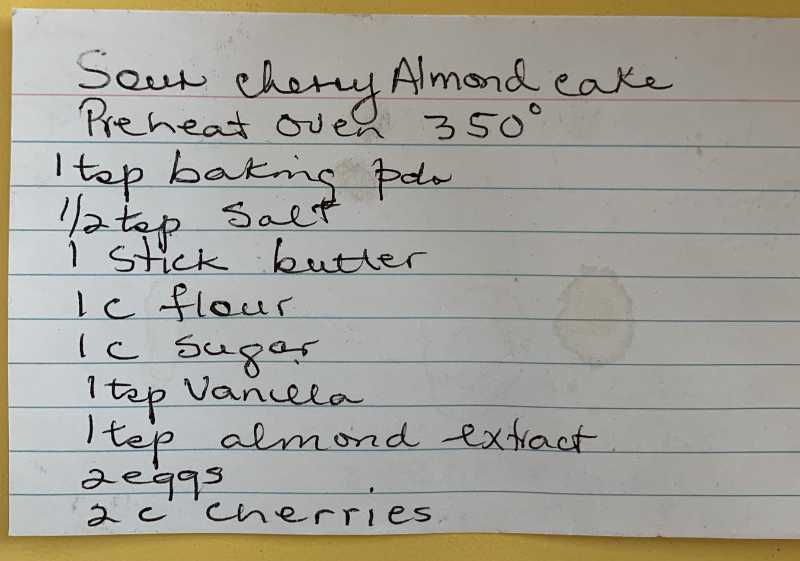 Sour cherry Almond cake
Preheat oven 350°
1 tsp baking pdr
1/2 tsp Salt
1 Stick butter
1 c flour
1 c sugar
1 tsp Vanilla
1 tsp almond extract
2 eggs
2 c cherries